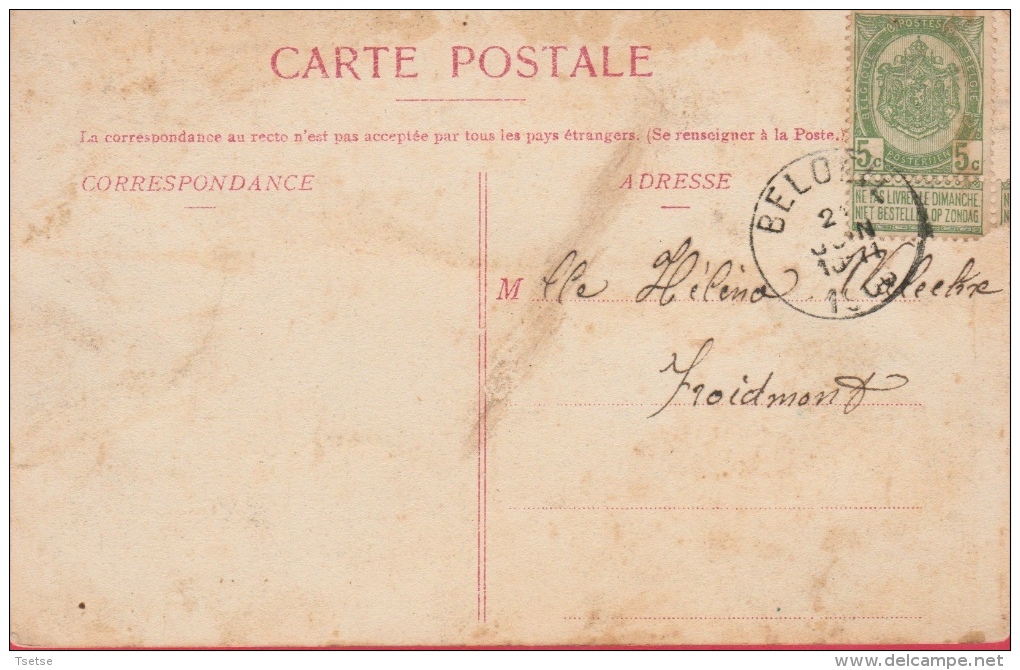 CARTE POSTALE
La correspondance au recto n'est pas acceptée par tous les pays étrangers. (Se renseigner à la Poste.)
CORRESPONDANCE
ADRESSE
POSTES
BELGIQUE
BELGIE
POSTERIJEN
5c 5c
NE PAS LIVRER LE DIMANCHE
NIET BESTELLEN OP ZONDAG
BELOEIL
Mlle Hélèna
Froidmont
Tsetse
delcampe.net